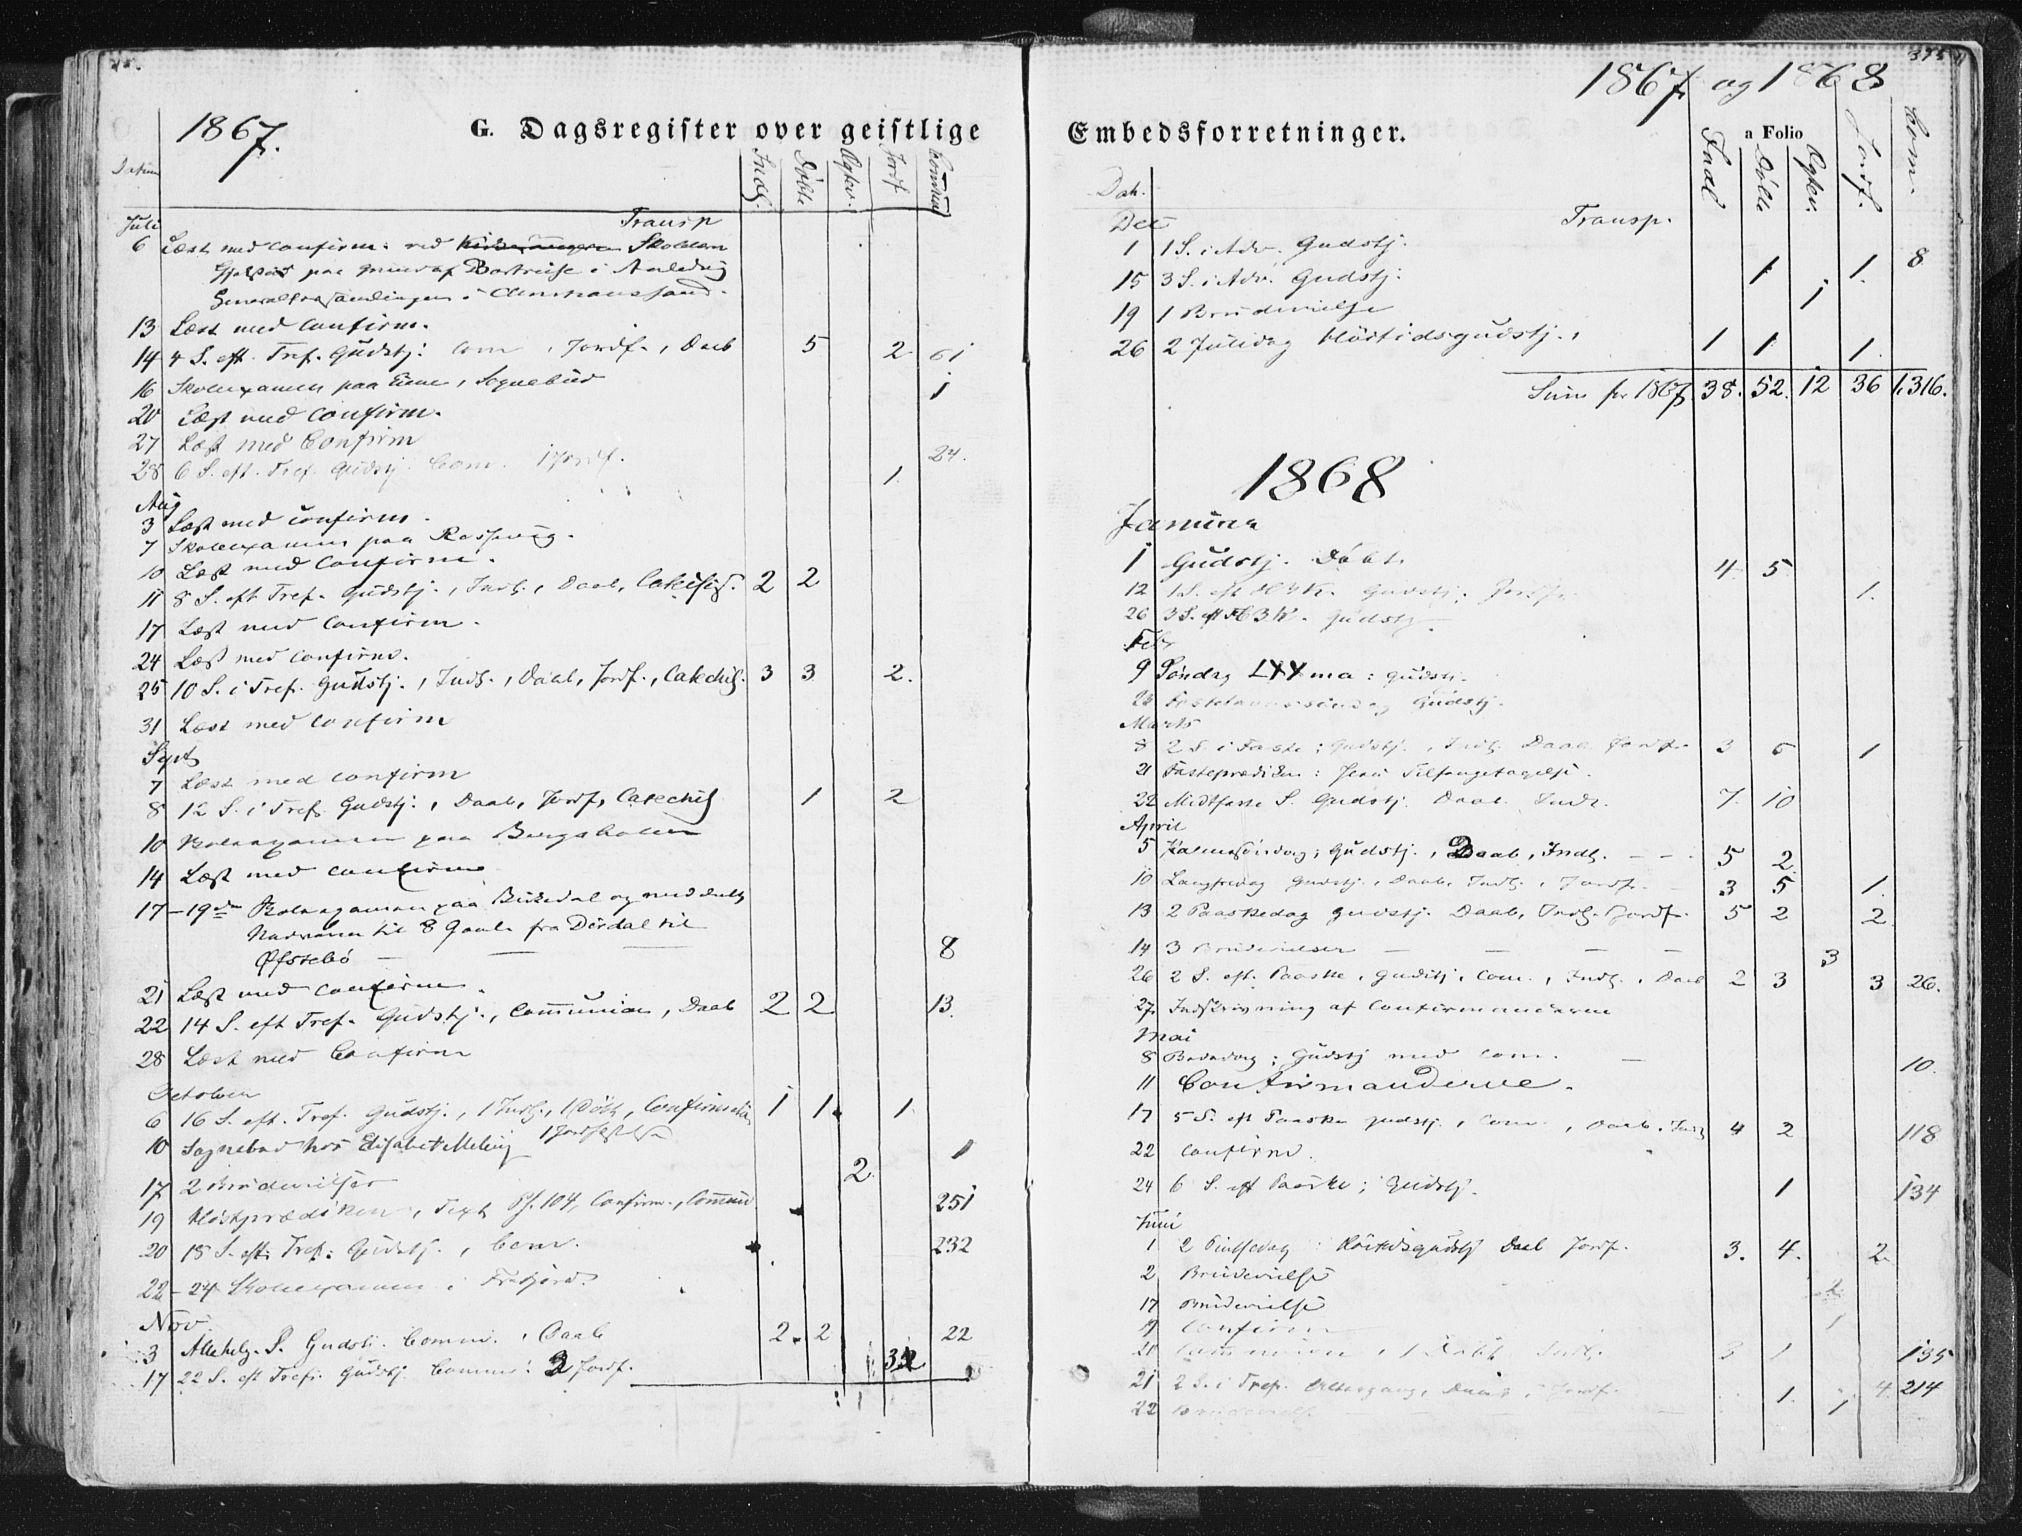 1867.
G. Dagsregister over geistlige
Indl. Døbte Jordf.
Juli Transp
6 Læst med Confirm. ved Skolden
paa Grund af Bortreise i Anledning
Generalforsamlingen i Christianssand.
13 Læst med Confirm.
14 4 S. eft. Tref. Gudstj: Com , Jordf., Daab 5 2 61
16 Skoleexamen paa , Sognebud 1
20 Læst med Confirm.
27 Læst med Confirm
28 6 S. eft. Tref. Gudstj. Com. 1 Jordf. 1. 24.
Aug
3 Læst med Confirm.
7 Skoleexamen paa
10 Læst med Confirm.
11 8 S. eft Tref. Gudstj., Indl., Daab, Catechis. 2 2
17 Læst med Confirm.
24 Læst med Confirm.
25 10 S. i Tref. Gudstj., Indl., Daab, Jordf., Catechis. 3 3 2.
31 Læst med Confirm
Sept
7 Læst med Confirm
8 12 S. i Tref. Gudstj., Daab, Jordf, Catechis 1 2
10 Skoleexamen paa Bergeholen
14 Læst med Confirm
17-19de Skoleexamen paa og meddeelt
Nadveren til 8 Gamle fra Dirdal til
Øfstebö 8
21 Læst med Confirm.
22 14 S. eft Tref. Gudstj., Communion, Daab 2 2 13.
28 Læst med Confirm
October
6 16 S. eft. Tref. Gudstj., 1 Indl., 1 Døbt, Confirmation 1 1 1
1 Jordfestelse
10 Sognebud hos Elisabet Meling 1
17 2 Brudevielser 2.
19 Høstprædiken, Text Ps. 104, Confirm., Commun 251
20 18 S. eft. Tref: Gudstj., Com. 232
22-24 Skoleexamen i Frafjord.
Nov.
3 Allehelg. S. Gudstj. Commu. , Daab 2 2 22
17 22 S. eft Tref. Gudstj. Commu: 2 Jordf.
1867 og 1868
Embedsforretninger.
a Folio
Indl Døbte Jordf. Com.
Dat.
Dec Transp.
1 1 S. i Adv. Gudstj. 8
15 3 S. i Adv. Gudstj: 1 1.
19 1 Brudevielse 1
26 2 Juledag Høitidsgudstj. 1 1 1.
Sum for 1867 38. 52. 12 36 1,316.
1868
Januar
1 Gudstj. Døbt. 4 5
12 1 S. eft H3K. Gudstj. Jordf. 1.
26 3 S. eft H3K. Gudstj.
Febr
9 Søndag LXXma: Gudstj.
23 Fastelavnssøndag Gudstj.
Marts
8 2 S. i Faste; Gudstj., Indl. Daab Jordf. 3 6 1
21 Fasteprædiken: Jesu Tilfangetagelse.
22 Midtfaste S. Gudstj. Daab. Indl. 7. 10
April
5 Palmesøndag; Gudstj., Daab, Indl. 5 2
10 Langfredag Gudstj., Daab, Indl., Jordf. 3 5 1.
13 2 Paaskedag Gudstj. Daab, Indl. Jordf. 5 2 2
14 3 Brudevielser 3
26 2 S. eft. Paaske, Gudstj, Com., Indl., Daab 2 3 3 26.
27. Indskrivning af Confirmanderne
Mai
8 Bededag; Gudstj med Com. 10.
11 Confirmanderne.
17 5 S. eft Paaske Gudstj, Com., Daab, Indl 4 2 118
22 Confirm.
24 6 S. eft Paaske; Gudstj. 1 134
Juni
1 2 Pintsedag Høitidsgudstj Daab Jordf. 3. 4. 2.
2 Brudevielse 2
17 Brudevielse 1
Confirm
20 Communion, 1 Døbt Indl. 3 1 135
21 2 S. i Tref. Altergang, Daab, Jordf. 1. 4. 214
22 Brudevielse 1